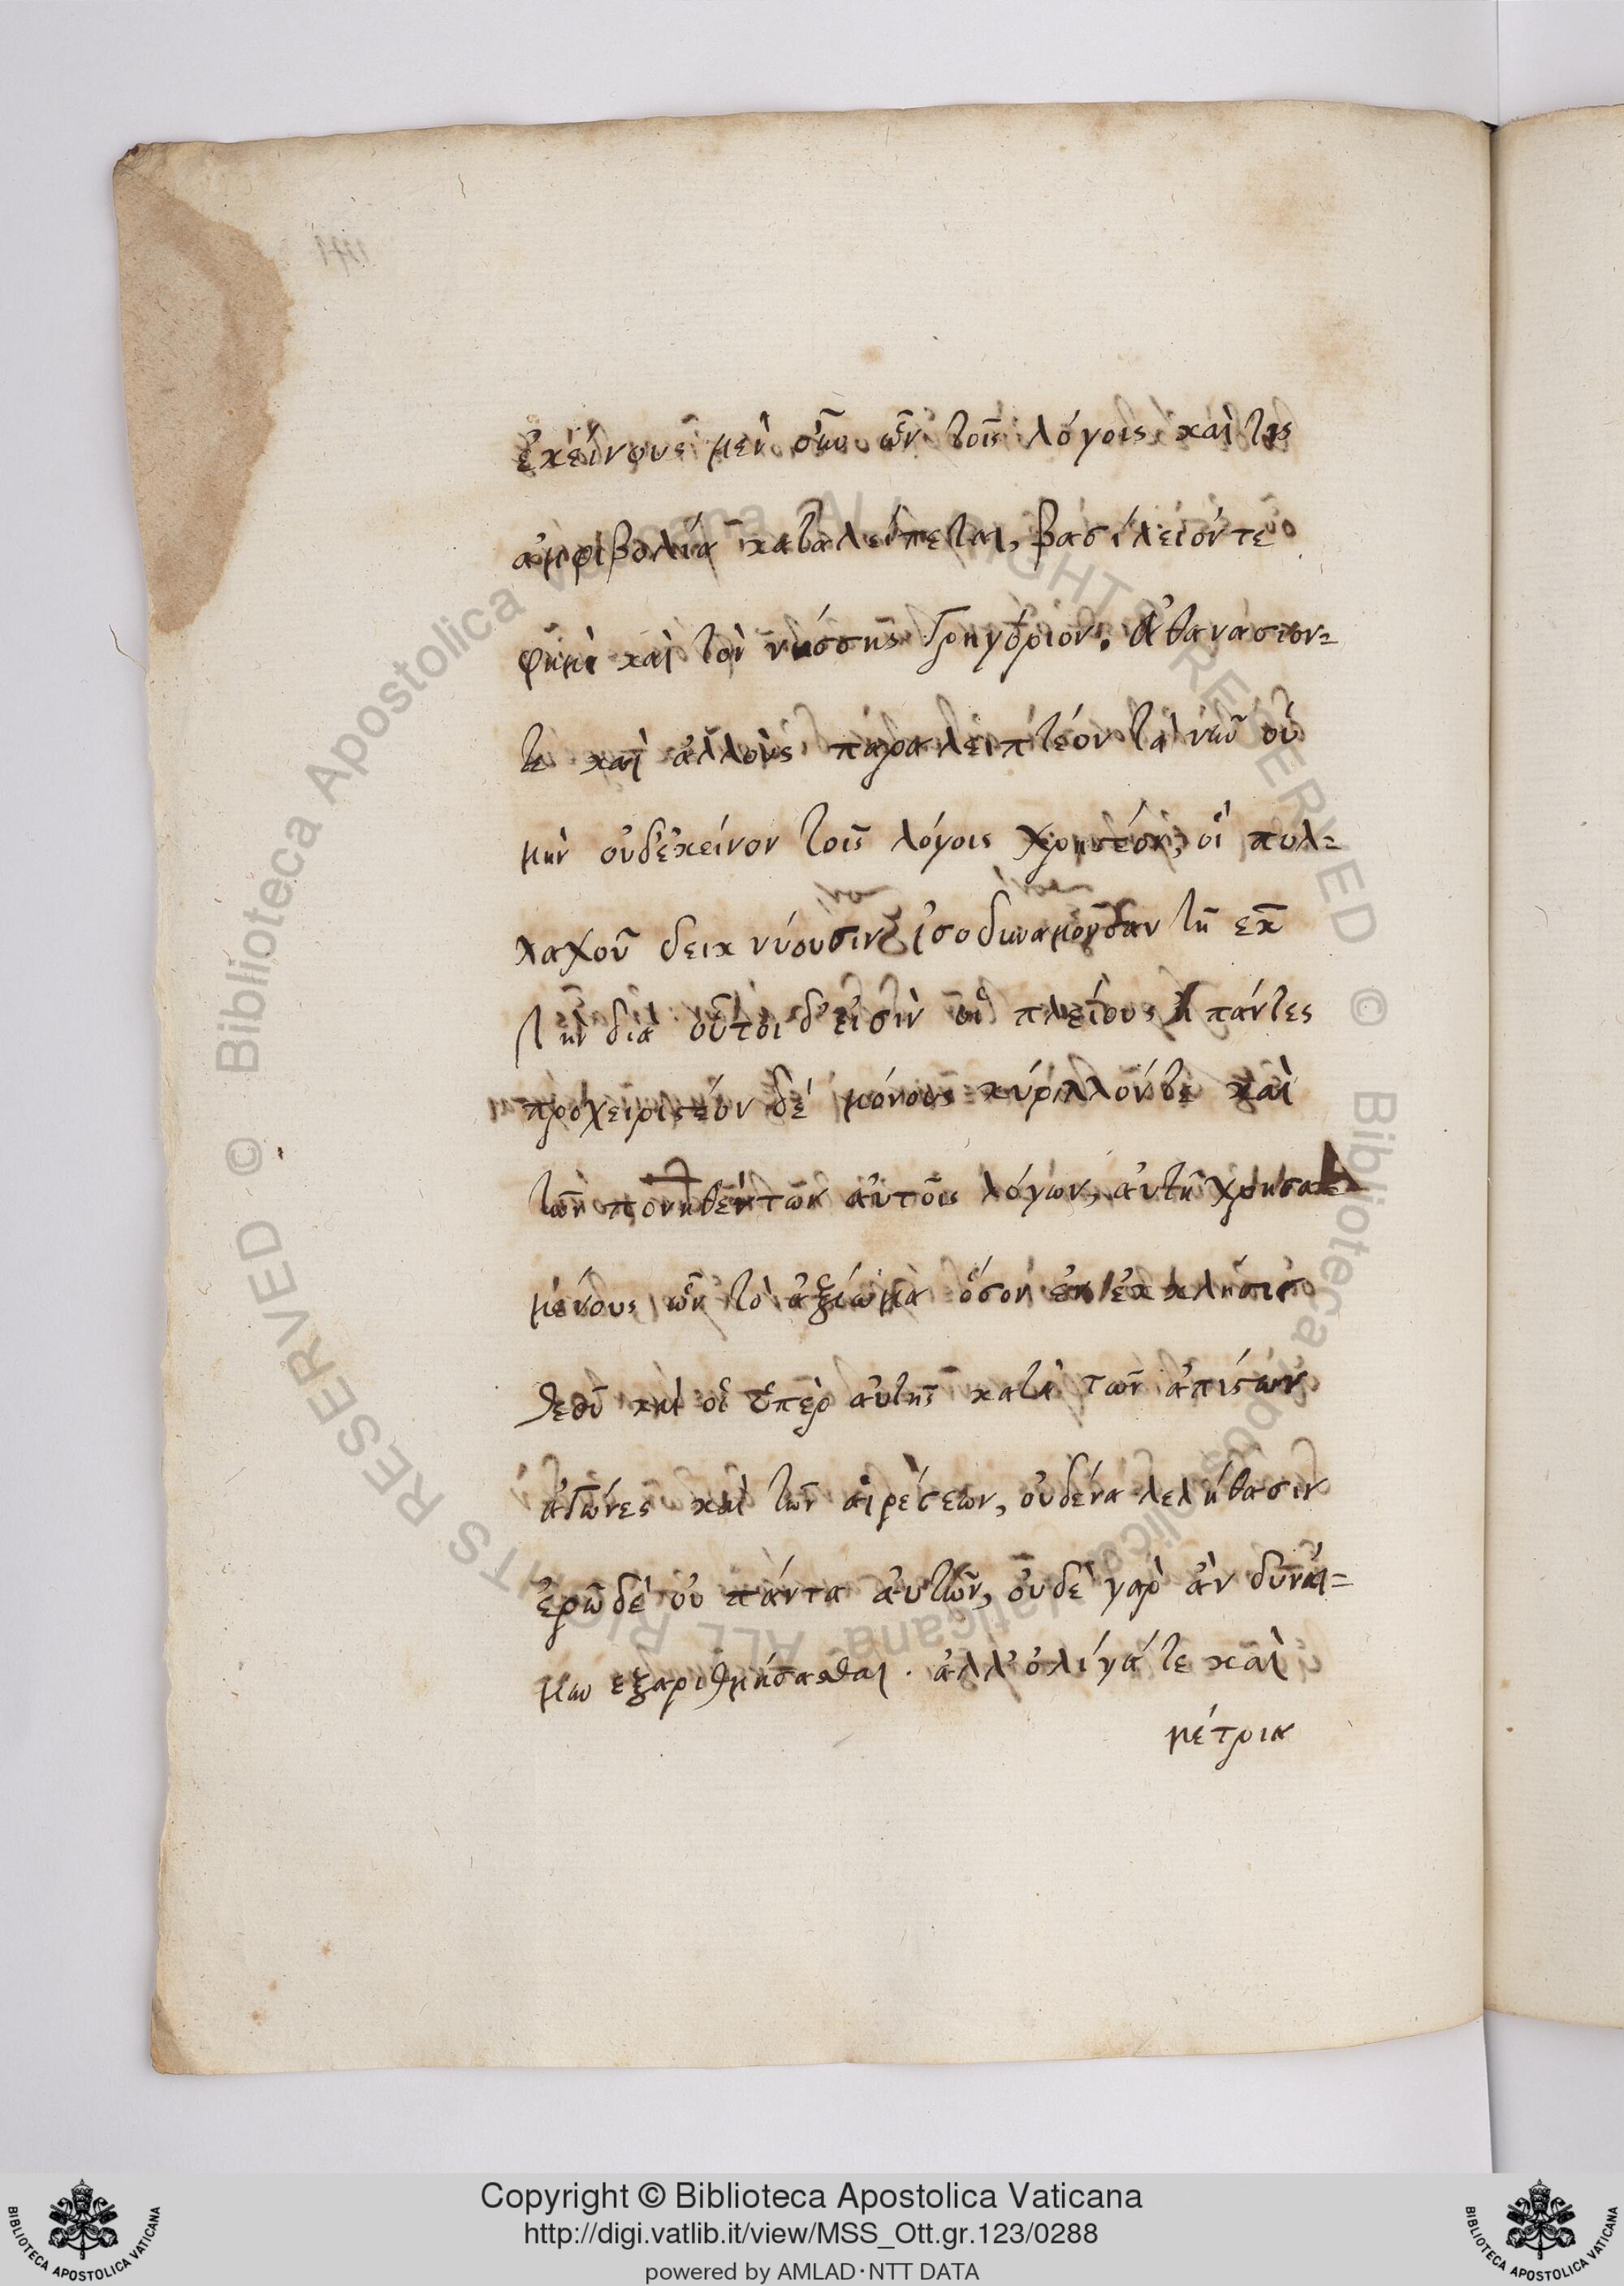 ἐκείνους μὲν οὖν ὧν τοῖς λόγοις καὶ τις
ἀμφιβολία καταλείπεται, βασίλειόντε
φημὶ καὶ τὸν νύσσης Γρηγόριον. Ἀθανάσιον=
τε καὶ ἄλλους παραλειπτέον τὰ νῦν οὐ
μὴν οὐδ' ἐκείνον τοῖς λόγοις χρηστέον, οἳ πολ=
λαχοῦ δεικνύουσιν ἰσοδυναμοῦσαν τῇ ἐκ
τὴν διὰ οὗτοι δ' εἰσὶν οἱ πλείους ἢ πάντες
προχειριστέον δὲ μόνους κύριλλόντε καὶ
τῶν πονηθέντων αὐτοῖς λόγων, αὐτῇ χρησα=
μένους ὧν τὸ ἀξίωμα ὅσον ἐν ἐκκλησίᾳ
θεοῦ καὶ οἱ ὑπὲρ αὐτῆς κατὰ τῶν ἀπίστων
ἀγῶνες καὶ τῶν αἱρέσεων, οὐδένα λελήθασιν
ἐρῶ δὲ οὐ πάντα αὐτῶν, οὐδὲ γὰρ ἂν δυναί=
μην ἐξαριθμήσασθαι. ἀλλ' ὀλίγα τε καὶ
μέτρια
Copyright © Biblioteca Apostolica Vaticana
http://digi.vatlib.it/view/MSS_Ott.gr.123/0288
powered by AMLAD·NTT DATA